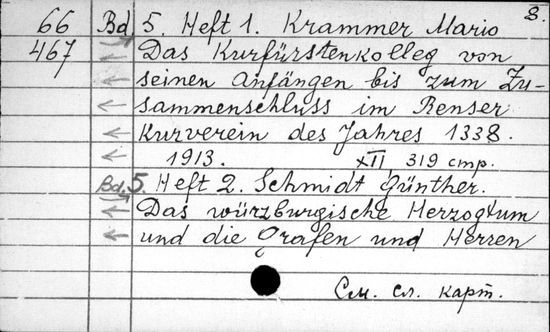 8.
66 Bd 5. Heft 1. Krammer Mario
467 Das Kurfürstenkolleg von
seinen Anfängen bis zum Zu-
sammenschluss im Renser
Kurverein des Jahres 1338.
1913. XII, 319 стр.
Bd. 5. Heft 2. Schmidt Günther.
Das würzburgische Herzogtum
und die Grafen und Herren
См. сл. карт.